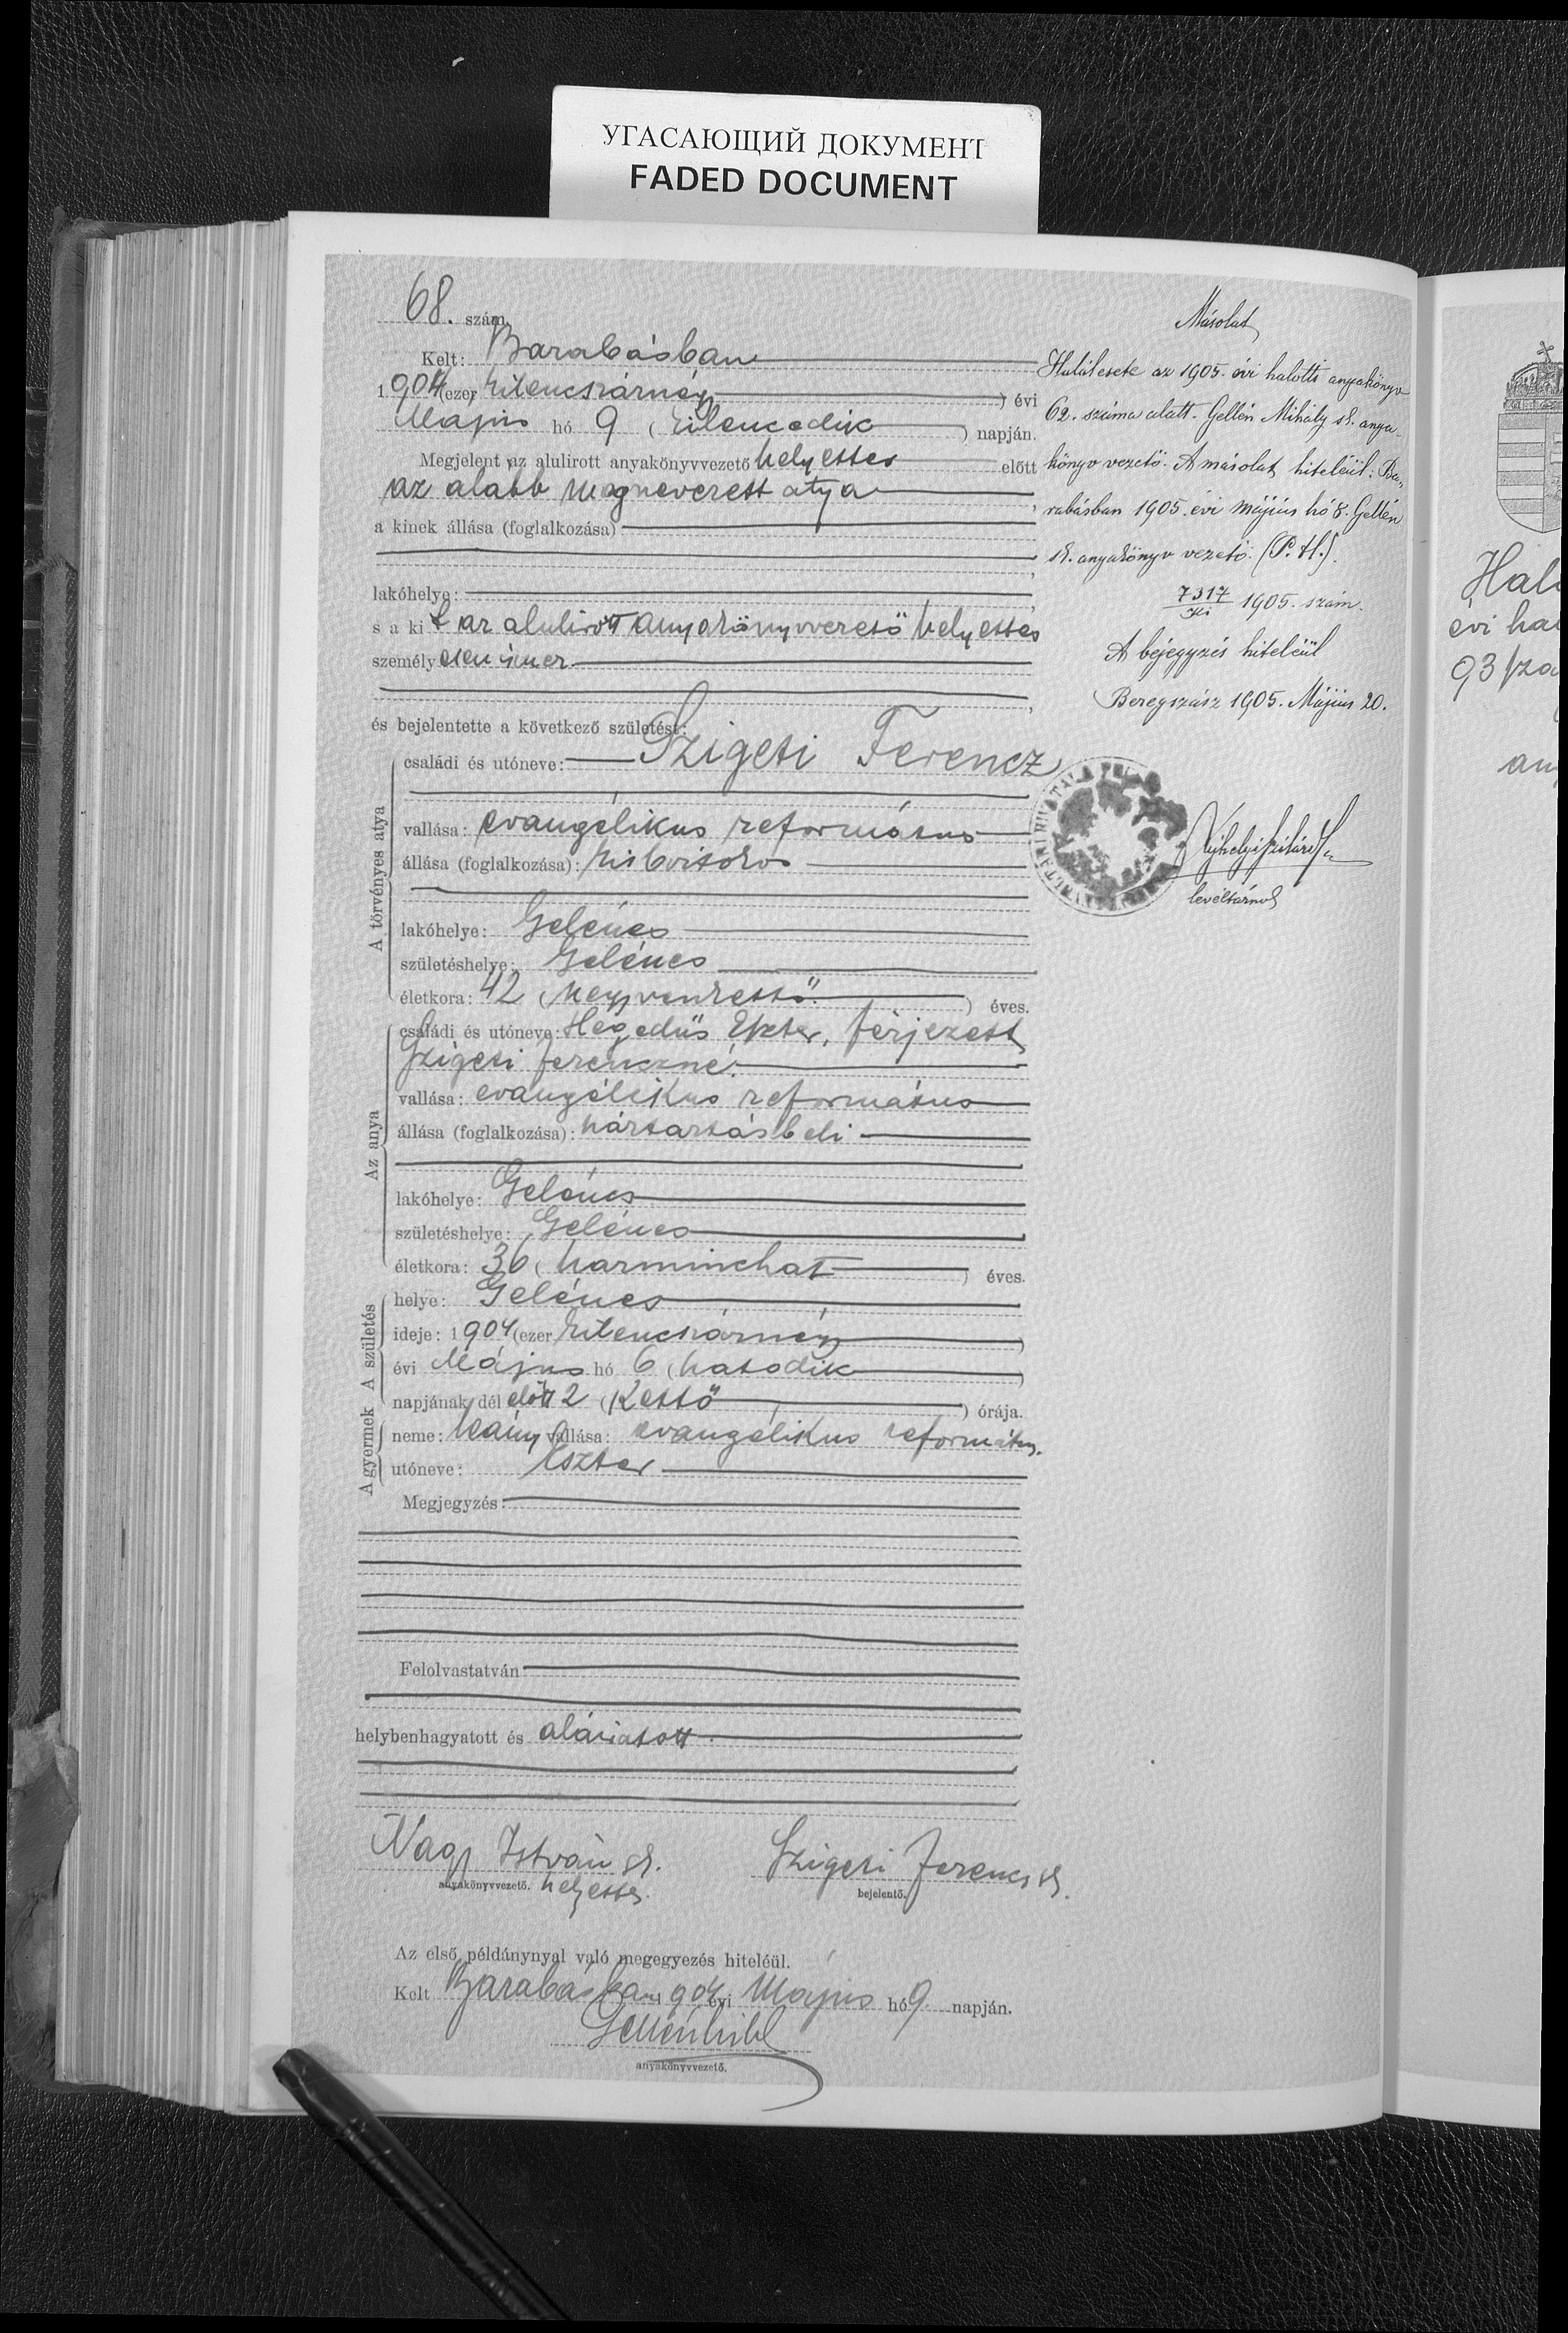 УГАСАЮЩИЙ ДОКУМЕНТ
FADED DOCUMENT
68. szám.
Kelt: Barabásban
1904 (ezer kilencszáznégy) évi
Május hó 9 (kilencedik) napján.
Megjelent az alulirott anyakönyvvezető helyettes előtt
az alább megnevezett atya,
a kinek állása (foglalkozása)
lakóhelye:
s a kit az alulirott anyakönyvvezető helyettes
személyesen ismer
és bejelentette a következő születést:
A törvényes atya
családi és utóneve: Szigeti Ferencz
vallása: evangélikus református
állása (foglalkozása): kisbirtokos
lakóhelye: Gelénes
születéshelye: Gelénes
életkora: 42 (negyvenkettő) éves.
Az anya
családi és utóneve: Hegedüs Eszter, férjezett
Szigeti Ferenczné.
vallása: evangélikus református
állása (foglalkozása): háztartásbeli
lakóhelye: Gelénes
születéshelye: Gelénes
életkora: 36 (harminchat) éves.
A születés
helye: Gelénes
ideje: 1904 (ezer kilencszáznégy)
évi Május hó 6 (hatodik)
napjának dél előtt 2 (kettő) órája.
A gyermek
neme: leány vallása: evangélikus református.
utóneve: Eszter
Megjegyzés:
Felolvastatván
helybenhagyatott és aláiratott.
Nagy István sk. Szigeti Ferencz sk.
anyakönyvvezető. helyettes. bejelentő.
Az első példánynyal való megegyezés hiteléül.
Kelt Barabásban 1904 évi Május hó 9 napján.
Gellén Mihál
anyakönyvvezető.
Másolat
Halálesete az 1905. évi halotti anyakönyv
62. száma alatt. Gellén Mihály sk. anya-
könyv vezető. A másolat hiteléül: Ba-
rabásban 1905. évi május hó 8. Gellén
sk. anyakönyv vezető. (P. H.).
7317/ki 1905. szám.
A bejegyzés hiteléül
Beregszász 1905. Május 20.
levéltárnok
Hal
évi ha
93 sza
any